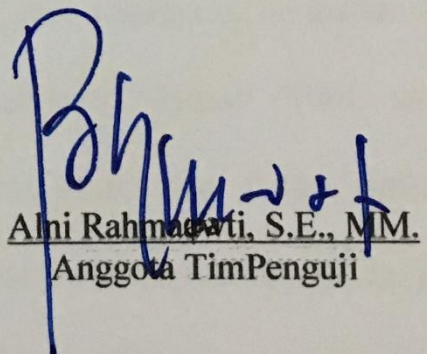 Alni Rahmawati, S.E., MM.
Anggota TimPenguji